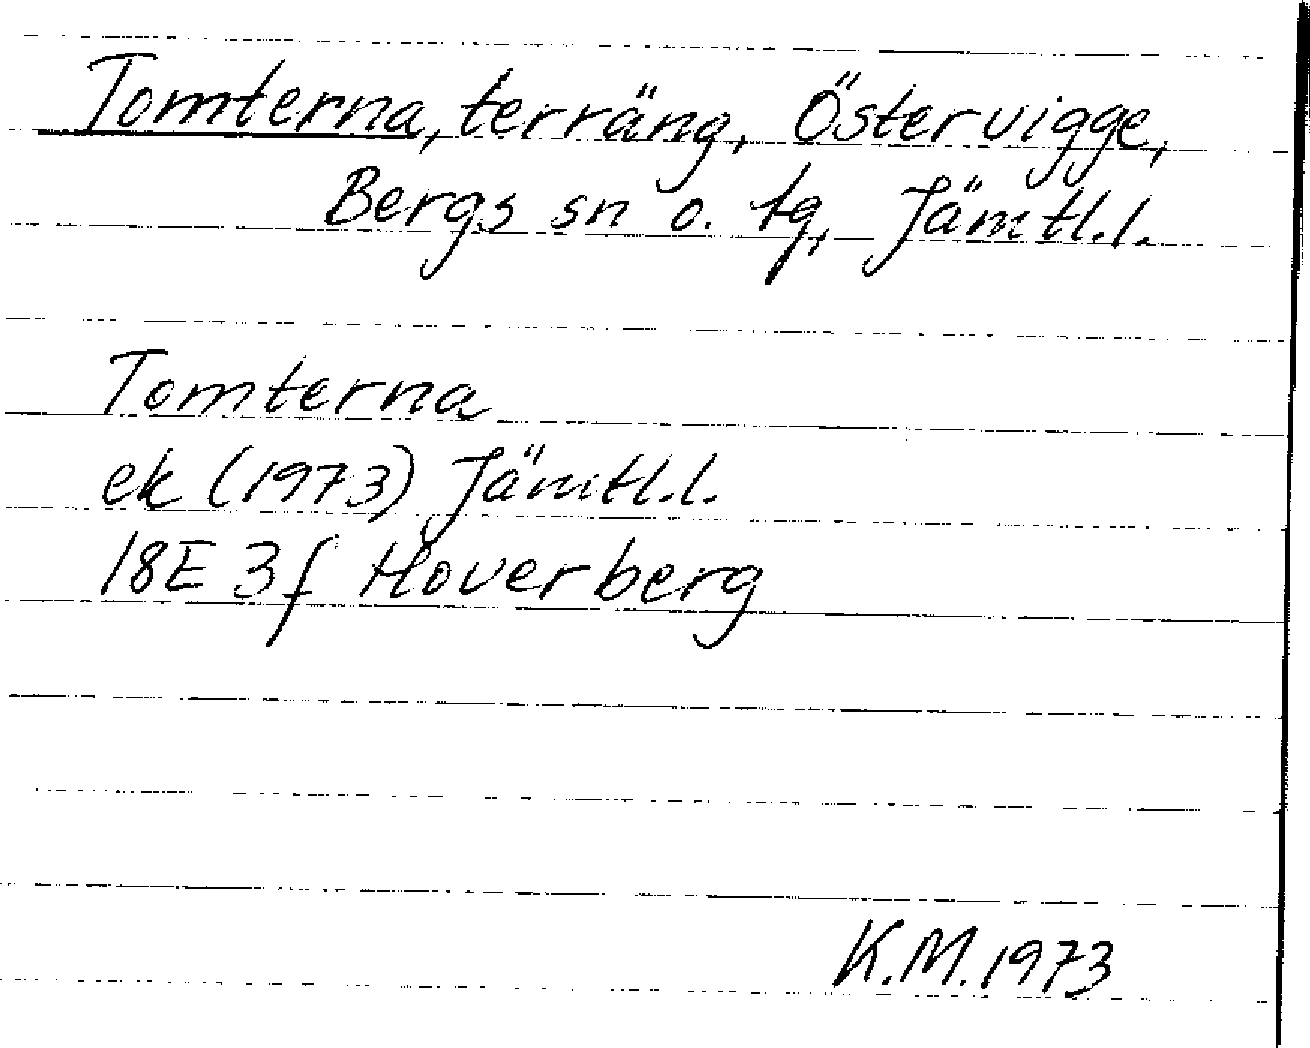 Tomterna, terräng, Östervigge,
Bergs sn o. tg, Jämtl.l.
Tomterna
ek (1973) Jämtl.l.
18E 3f Hoverberg
K.M. 1973